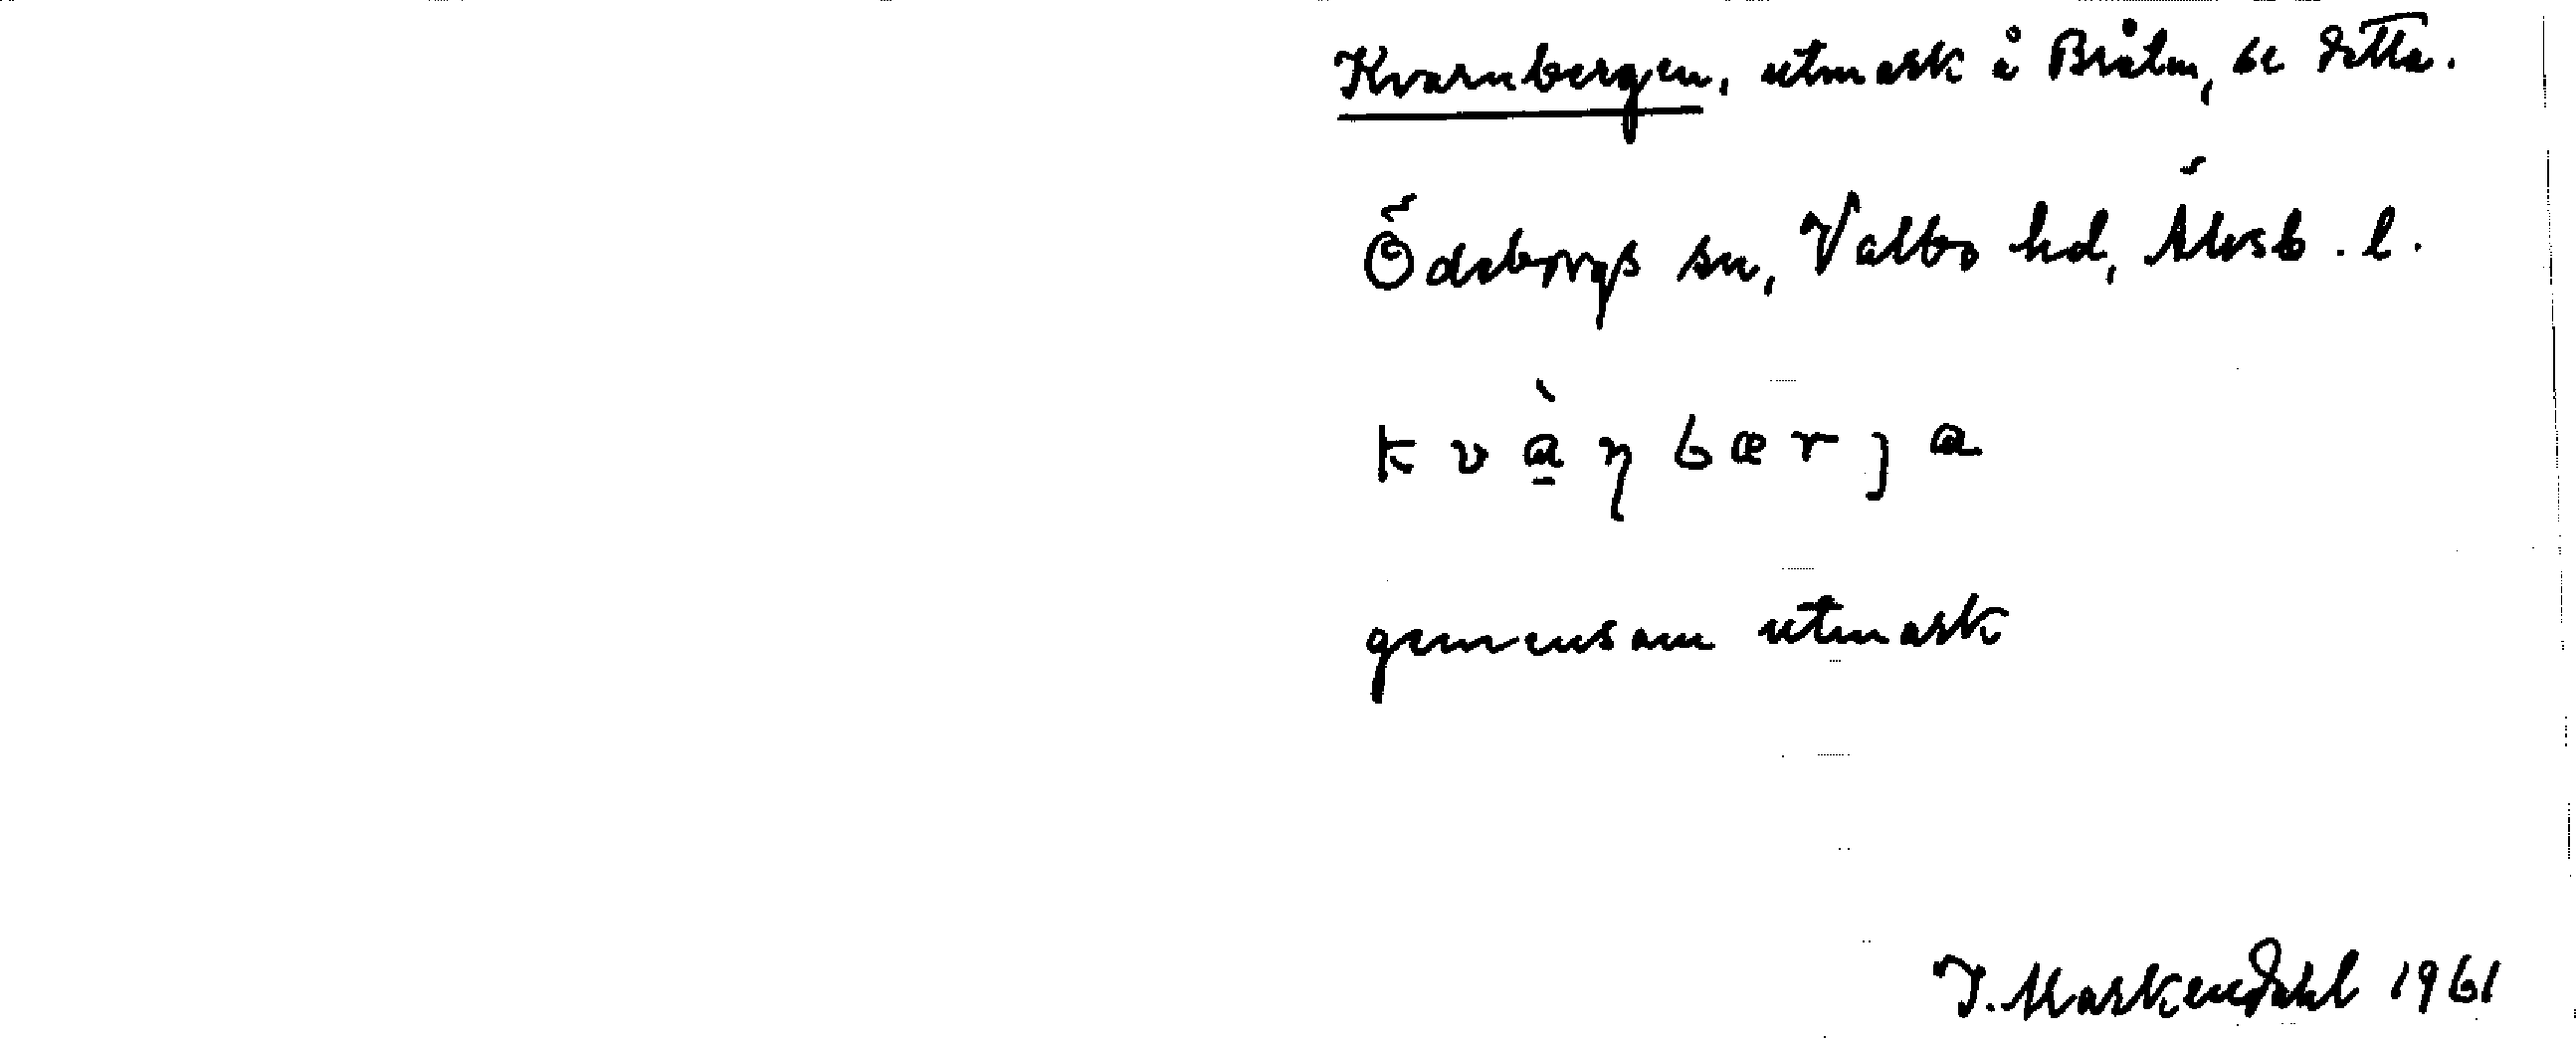 Kvarnbergen, utmark å Bråten, se detta.
Ödeborgs sn, Valbo hd, Älvsb. l.
k v à̱ ꞃ b æ r ȷ a
gemensam utmark
I. Markendahl 1961